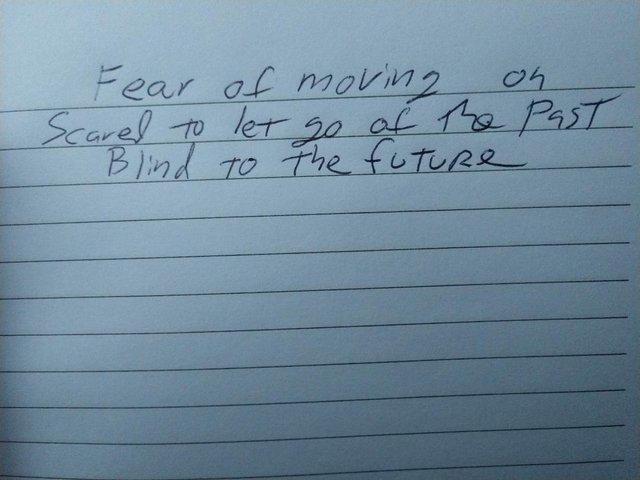 Fear of moving on
Scared to let go of the Past
Blind to the future